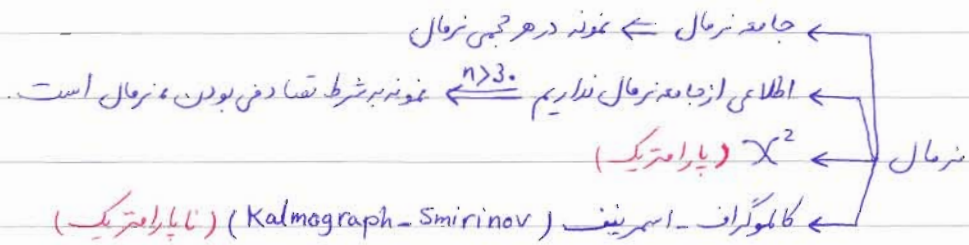 جامعه نرمال ⇐ نمونه در هر حجمی نرمال
اطلاعی از جامعه نرمال نداریم ⇐ n>30 نمونه به شرط تصادفی بودن، نرمال است.
نرمال
X² (پارامتریک)
کالموگراف - اسمرینف (Kalmograph - Smirinov) (ناپارامتریک)